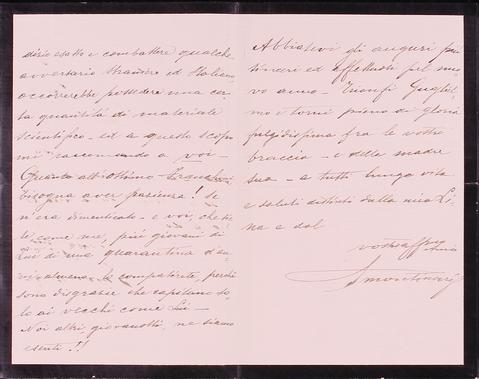 dirio esatto e combattere qualche
avversario straniero ed Italiano
occorrerebbe possedere una cer-
ta quantità di materiale
scientifico - ed a questo scopo
mi raccomando a voi -
Quanto all'ottimo
bisogna aver pazienza! Se
n'era dimenticato - e voi, che sie-
te come me, più giovani di
Lui di una quarantina d'an-
ni almeno, lo compatirete, perchè
sono disgrazie che capitano so-
lo ai vecchi come Lui -
Noi altri, giovanotti, ne siamo
esenti!!
Abbiatevi gli auguri più
sinceri ed affettuosi pel nuo-
vo anno - Trionfi Gugliel-
mo e torni pieno di gloria
fulgidissima fra le vostre
braccia - e della madre
sua - a tutti lunga vita
e saluti distinti dalla mia Li-
na e dal
vostro affmo amico